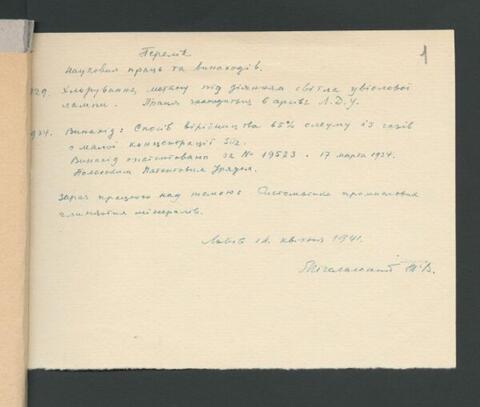 1
Перелік
наукових праць та винаходів.
929. Хлорування метану під діянням світла увіолевої
лампи. Праця знаходиться в архіві Л.Д.У.
934. Винахід: Спосіб вірібництва 65% олеуму із газів
з малої концентрації SO2.
Винахід опатентовано за № 19523 17 марта 1934.
Польським Патентовим Урядом.
Зараз працюю над темою: Систематика промислових
глинястих мінералів.
Львів 12. квітня 1941.